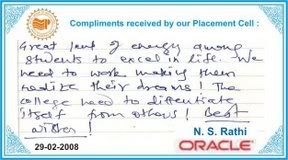 Compliments received by our Placement Cell :
Great level of energy among
students to excel in life. We
need to work making them
realize their dreams! The
college need to diferentiate
itself from others! Best
wishes!
N. S. Rathi
29-02-2008
ORACLE